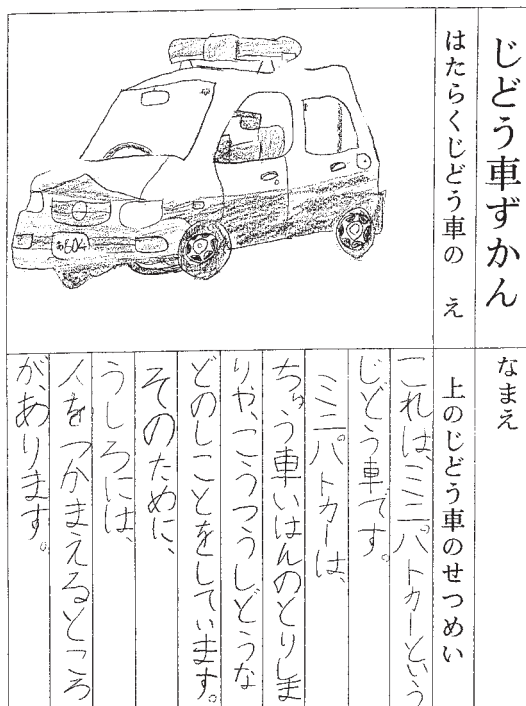 じどう車ずかん
なまえ
はたらくじどう車の　え
上のじどう車のせつめい
これは、ミニパトカーという
じどう車です。
ミニパトカーは、
ちゅう車いはんのとりしま
りや、こうつうしどうな
どのしごとをしています。
そのために、
うしろには、
人をつかまえるところ
が、あります。
あ604